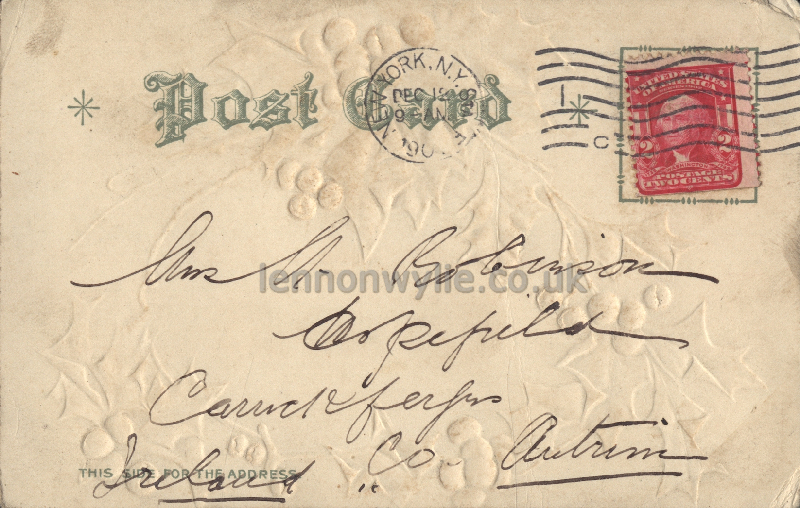 Post Card
NEW YORK, N.Y.
DEC 15
9 AM
190
UNITED STATES
OF AMERICA
2 2
POSTAGE
TWO CENTS
Mrs W. Robinson
lennonwylie.co.uk
Hopefield
Carrickfergus
Co. Antrim
THIS SIDE FOR THE ADDRESS
Ireland